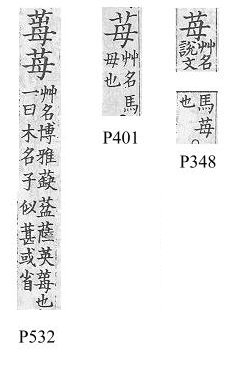 莓苺
艸名博雅蒛葐䕡英莓也
一曰木名子似葚或省
P532
苺
艸名馬
毋也
P401
苺
艸名
說文
馬苺
也
P348